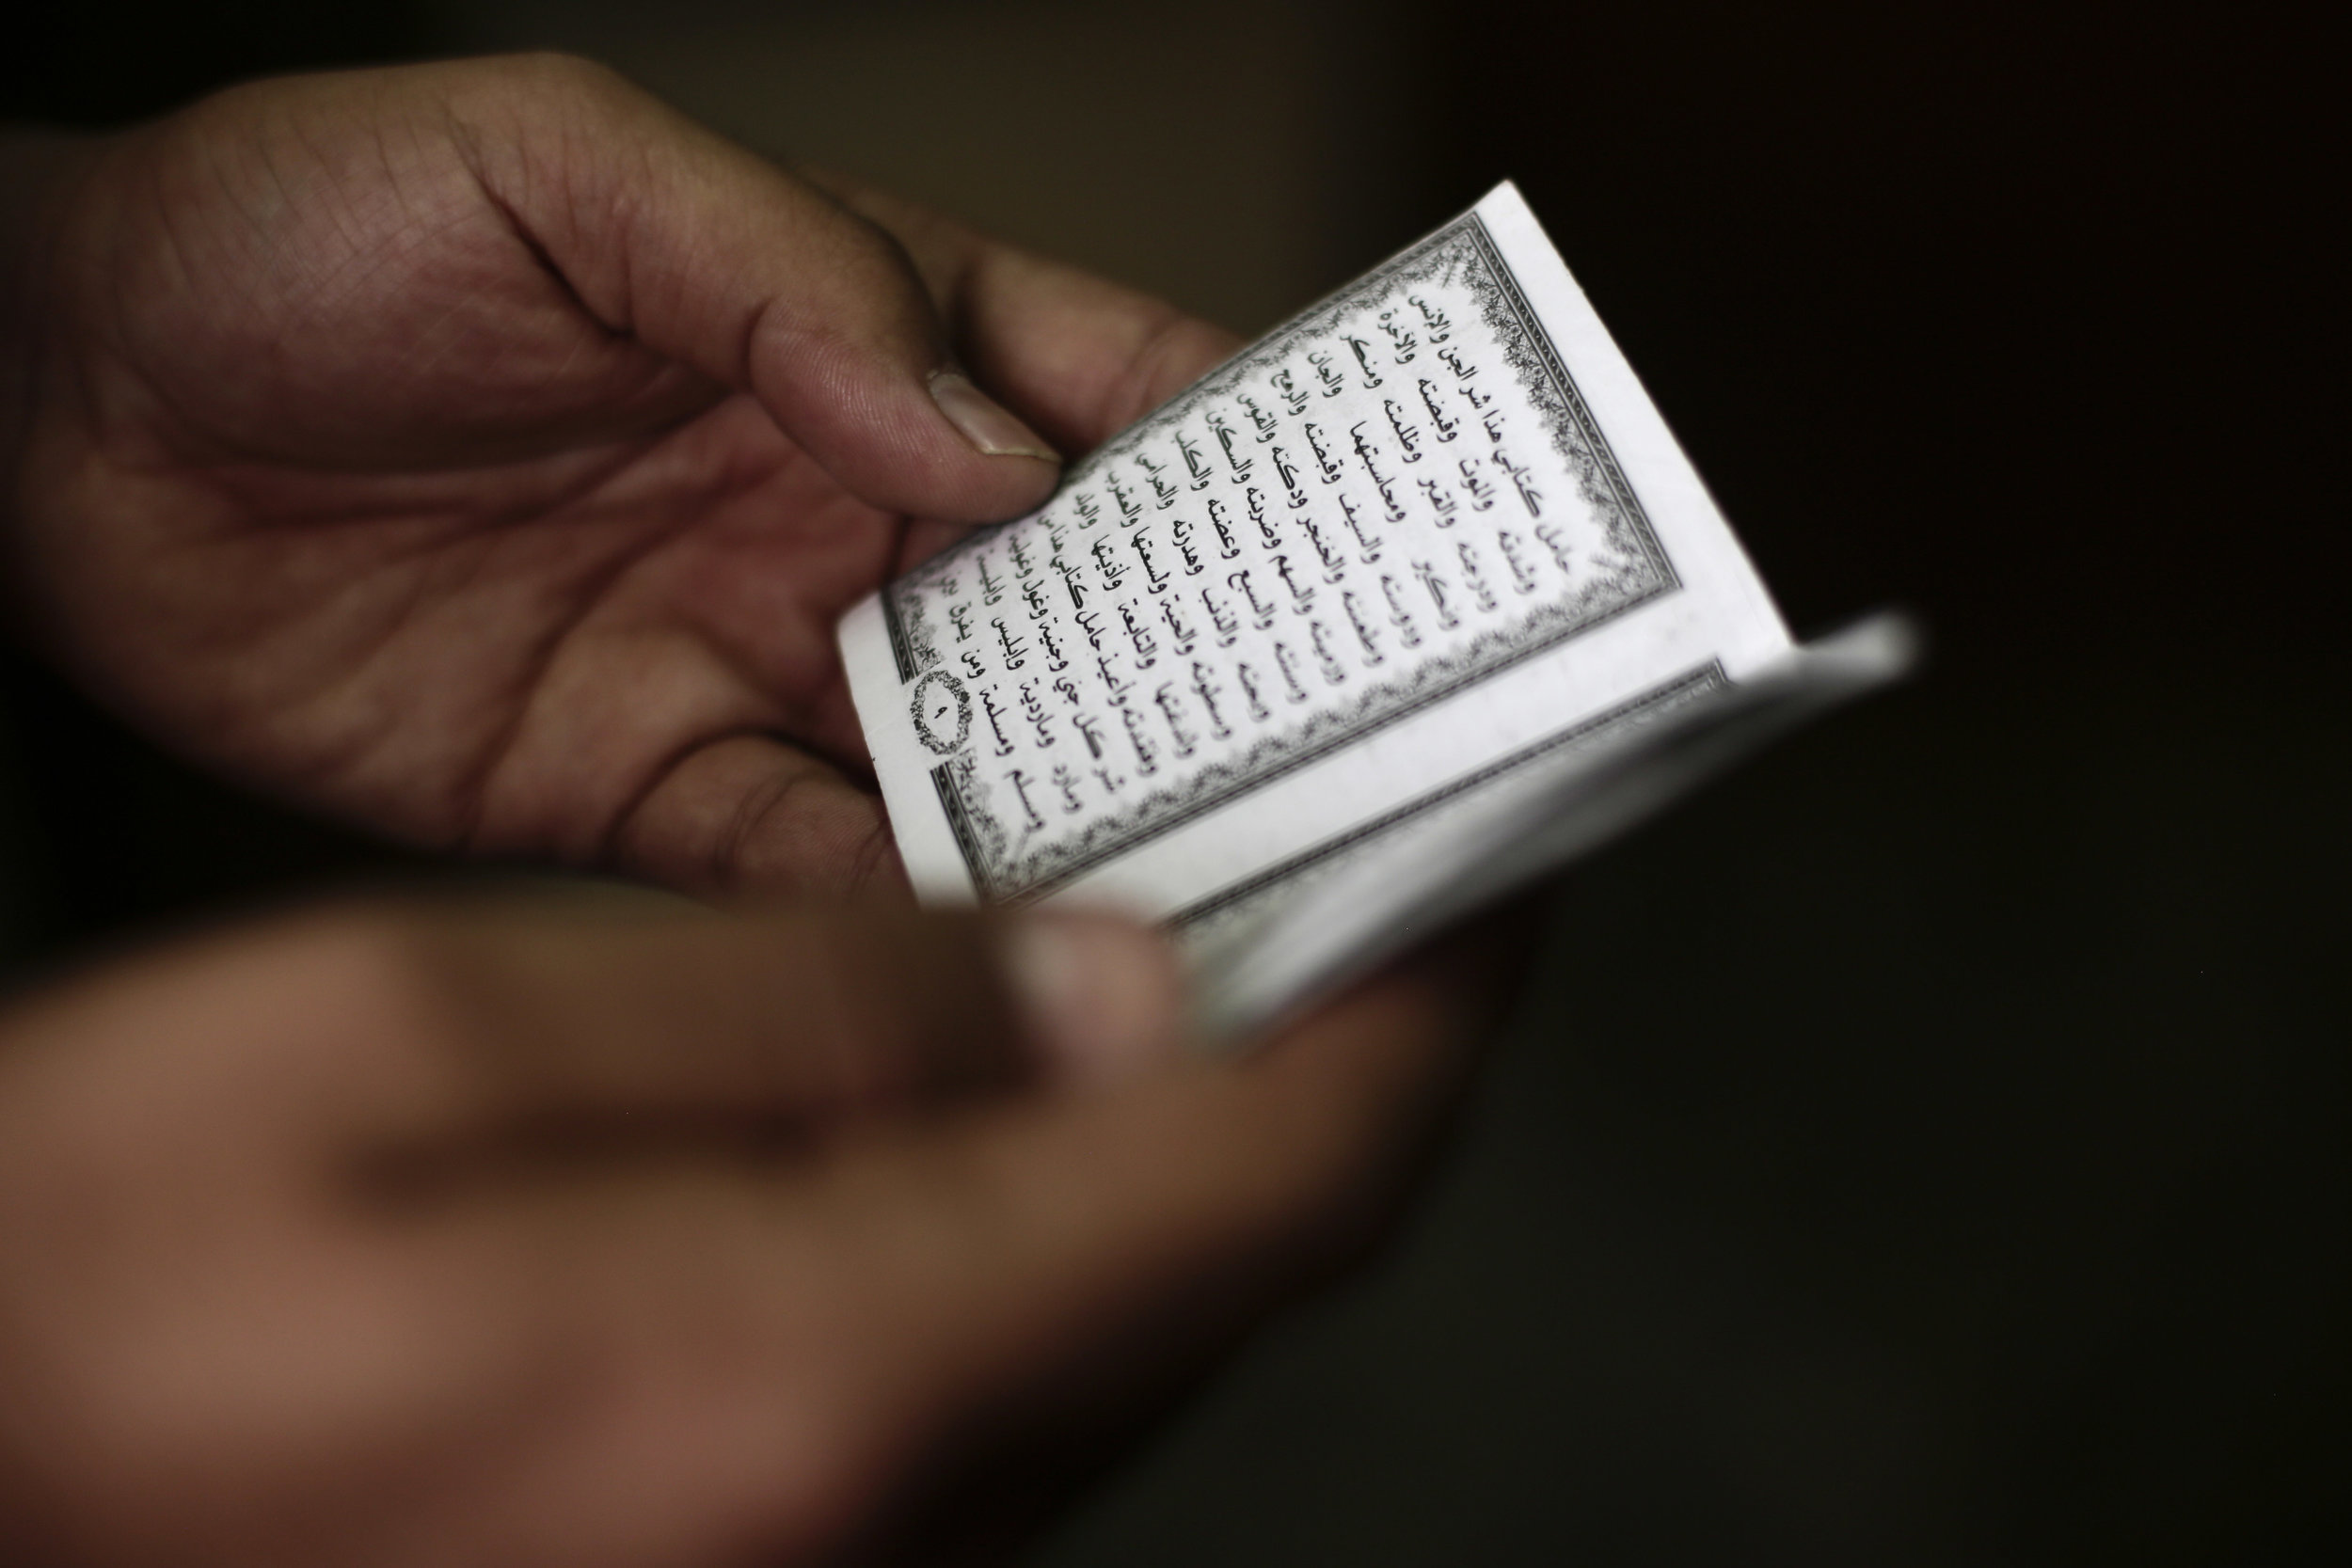 حامل كتابي هذا شر الجن والإنس
وشدته والموت وقبضته والآخرة
ودرجته والقبر وظلمته ومنكر
ونكير ومحاسبتهما والجان
ودوسته والسيف وقبضته والرمح
وطعنته والخنجر ودكته والقوس
ورميته والسهم وضربته والسكين
وسنته والسبع وعضته والكلب
وبحته والذئب وهدرته والحرامي
وسطوته والحية ولسعتها والعقرب
ولدغتها والتابعة وأذيتها والولد
وفقدته وأعيذ حامل كتابي هذا من
شر كل جني وجنية وغول وغولية
ومارد وماردية وإبليس وإبليسة
ومسلم ومسلمة ومن يفرق بين
٩